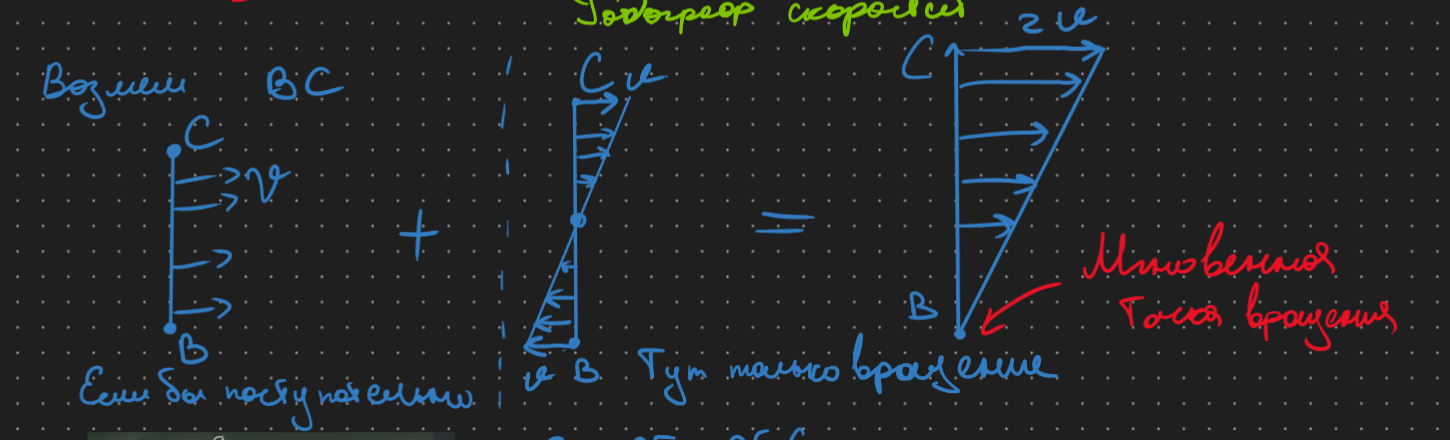 Годограф скоростей
Возмем BC
C
v
B
Если бы поступательно
+
C v
v B
Тут только вращение
=
C
2v
B
Мгновенная
Точка вращения